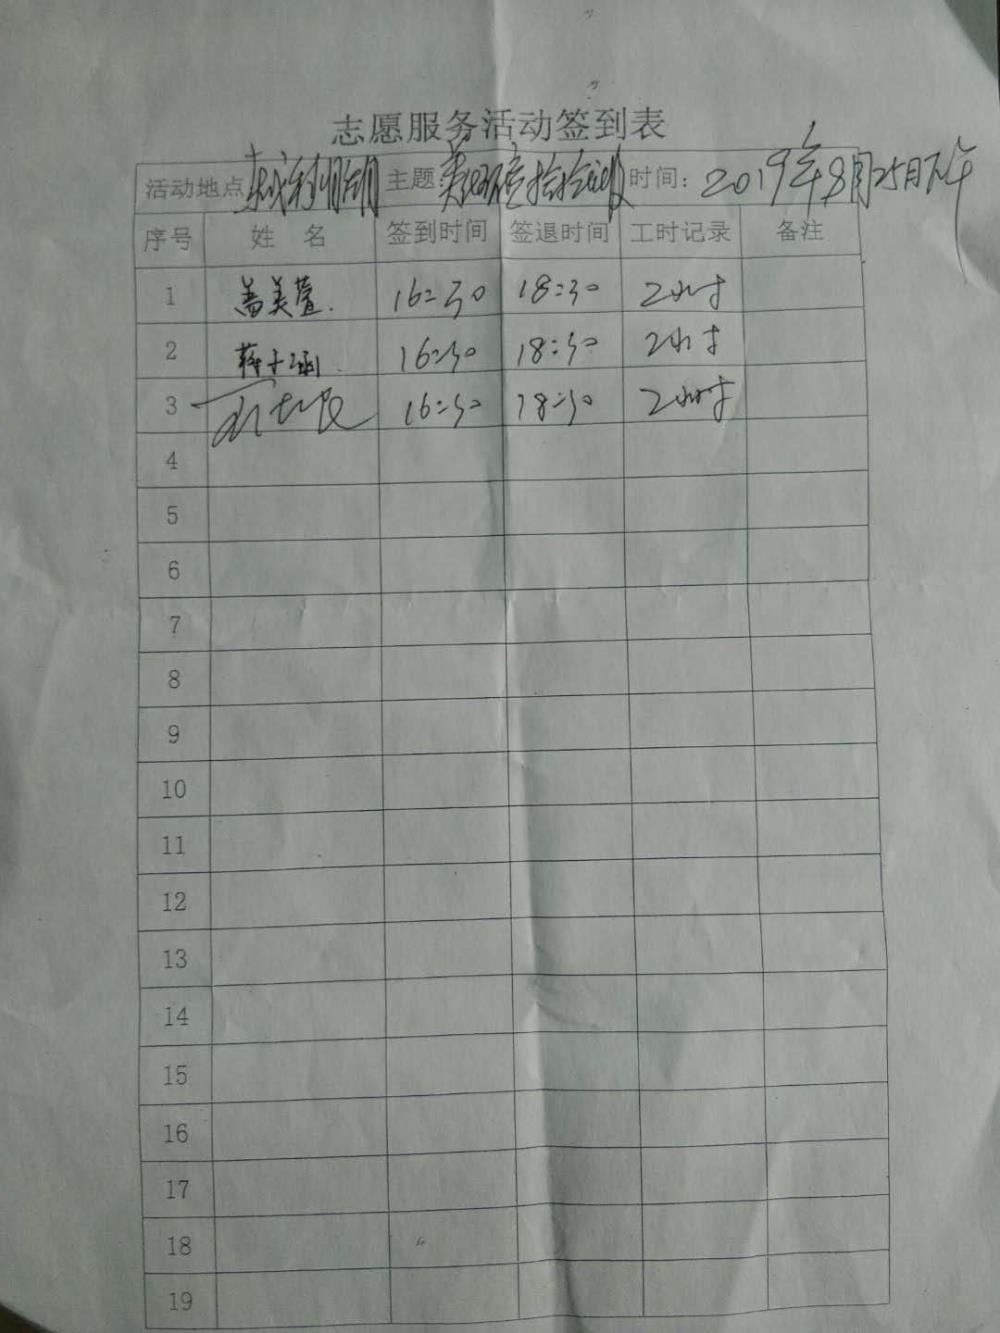 志愿服务活动签到表
活动地点 主题 时间: 2019年8月25日下午
序号 姓 名 签到时间 签退时间 工时记录 备注
1 盖美萱. 16:30 18:30 2小时
2 蒋子涵. 16:30 18:30 2小时
3 16:30 18:30 2小时
4
5
6
7
8
9
10
11
12
13
14
15
16
17
18
19